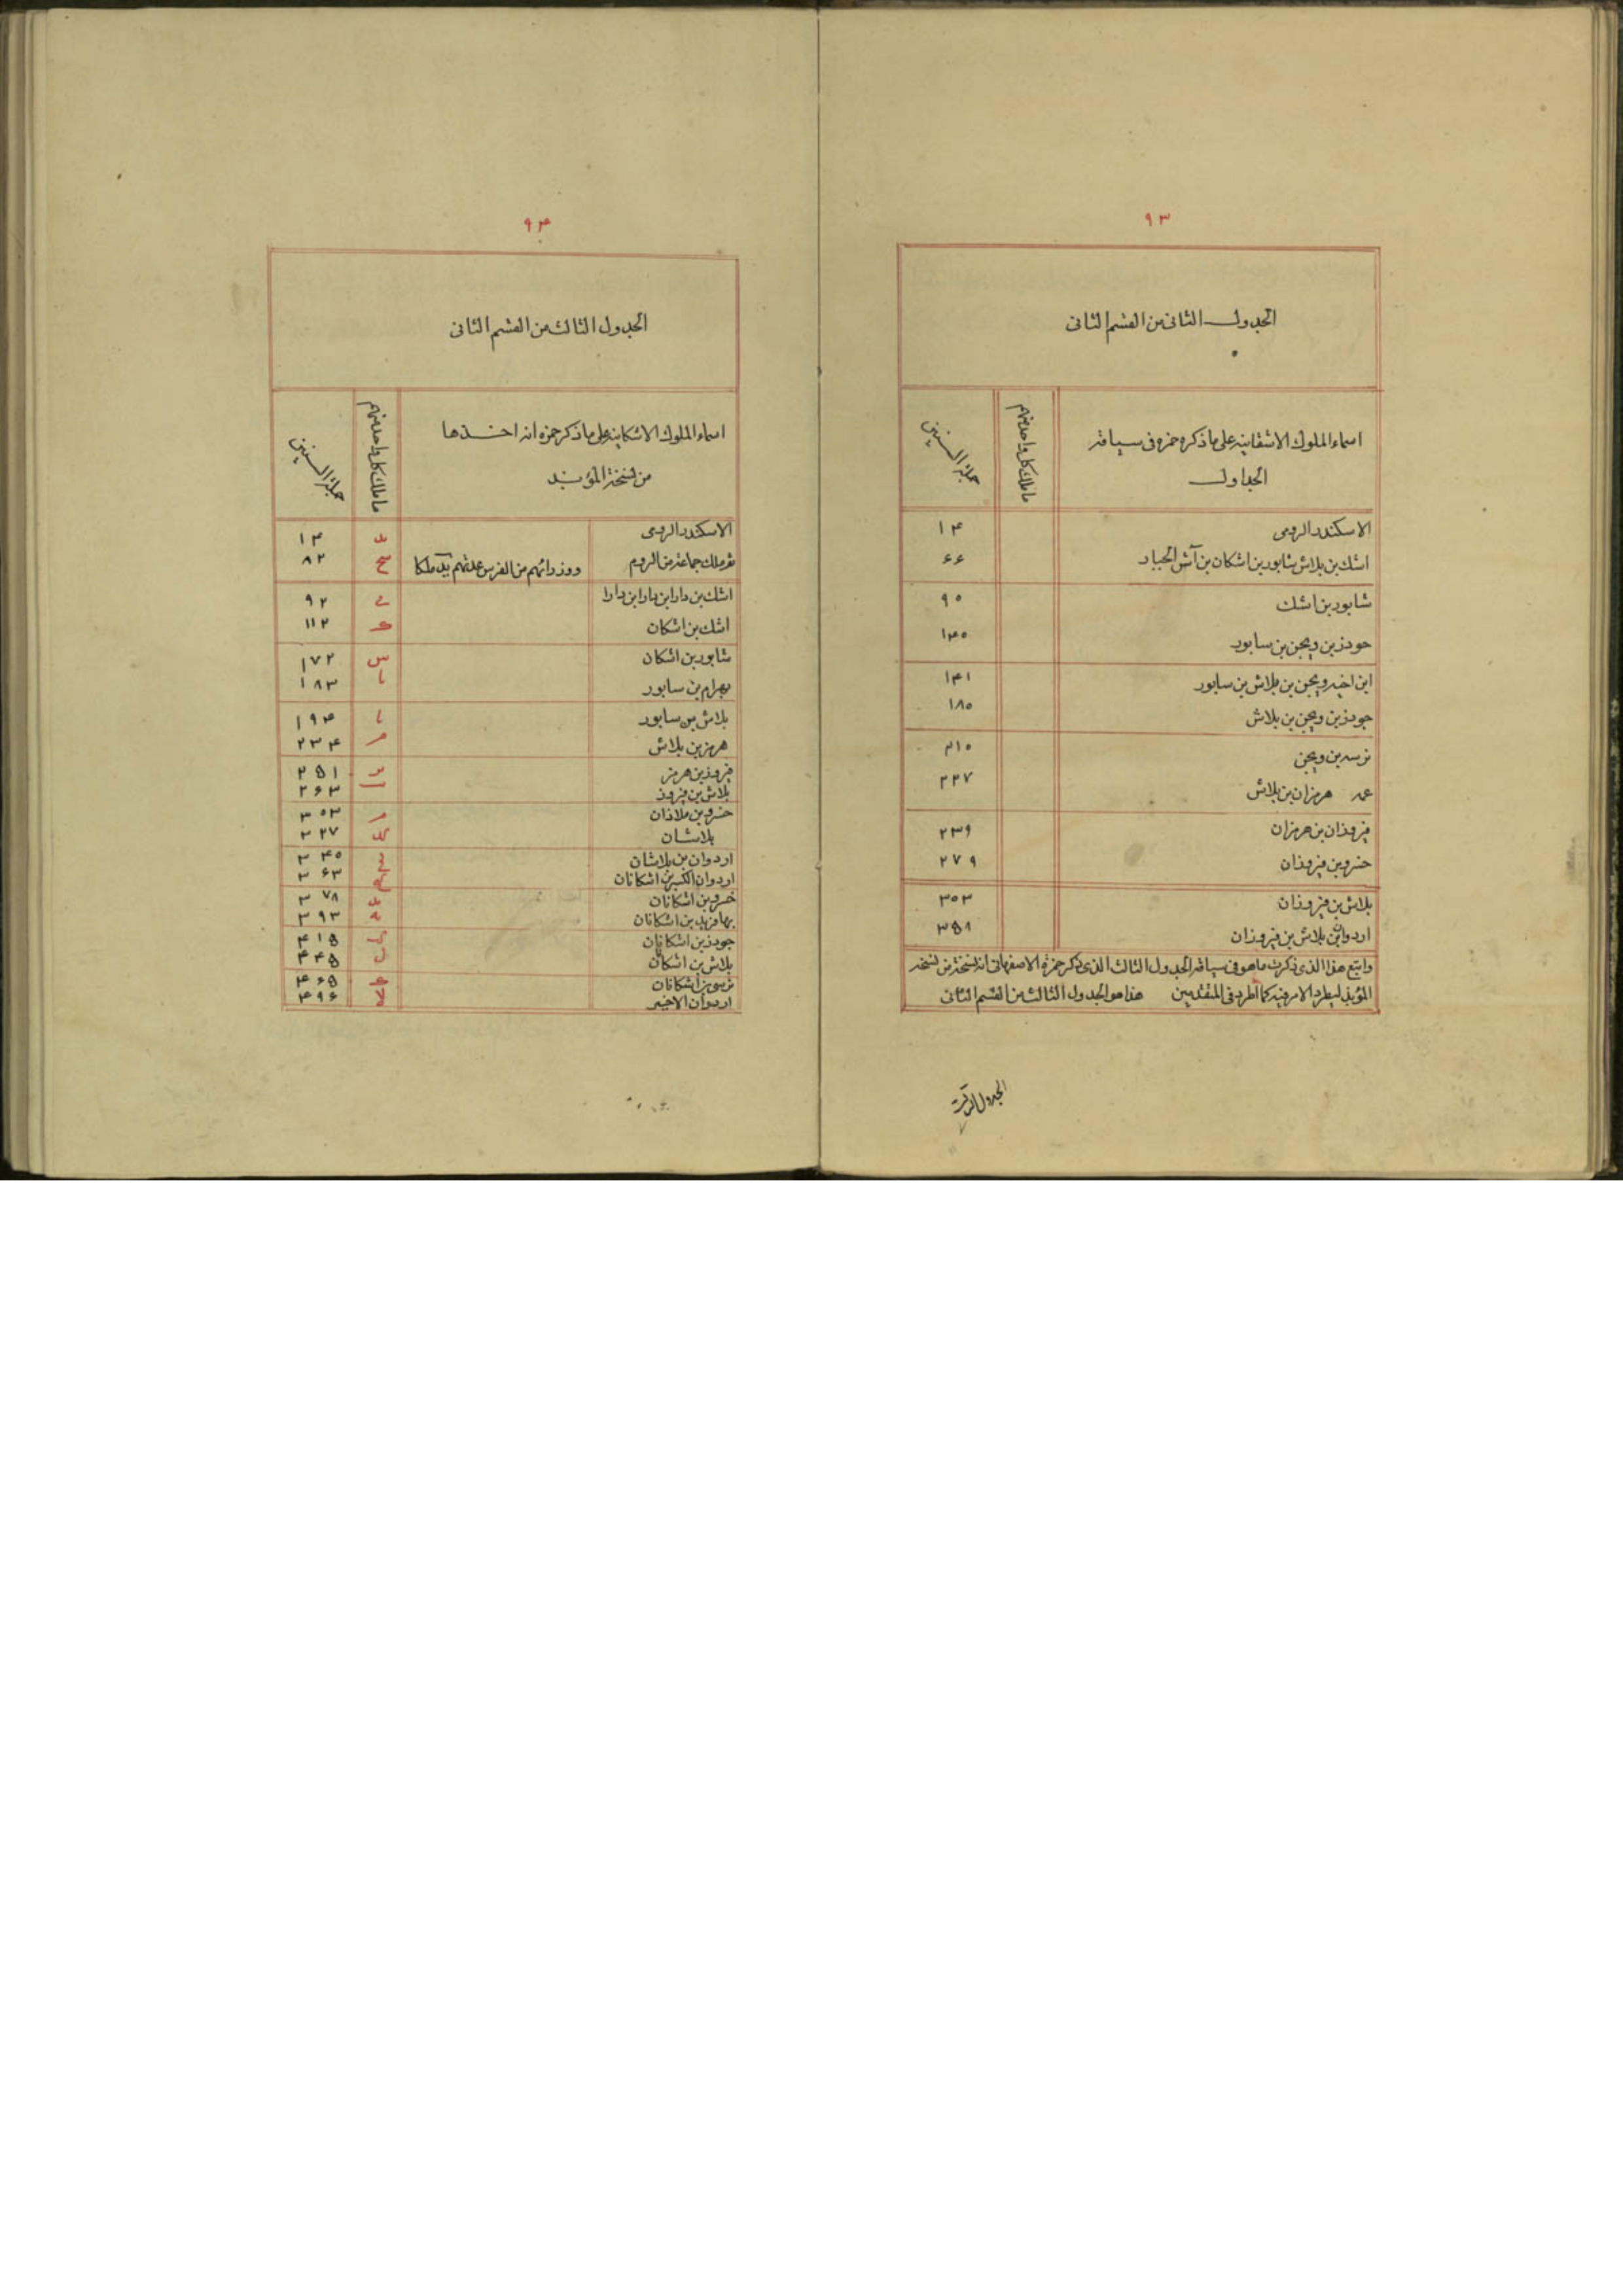 ٩٣
الجدول الثانى من القسم الثانى
اسماء الملوك الاشغانيه على ما ذكره حمزه فى سياقة
الجداول
ما ملك كل واحد منهم
جملة السنين
الاسكندر الرومى ١۴
اشك بن بلاش بن شابور بن اشكان بن آش الجبار ۶۶
شابور بن اشك ٩٠
جودز بن ويجن بن سابور ١۴٠
ابن اخيه ويجن بن بلاش بن سابور ١۴١
جودز بن ويجن بن بلاش ١٨٠
نرسه بن ويجن ٢١٠
عمه هرمزان بن بلاش ٢٢٧
فيروزان بن هرمزان ٢٣٩
خسرو بن فيروزان ٢٧٩
بلاش بن فيروزان ٣٠٣
اردوان بن بلاش بن فيروزان ٣۵٨
واتبع هذا الذى ذكرت ما هو فى سياقة الجدول الثالث الذى ذكر حمزة الاصفهانى انه نسخة من نسخة
المؤبذ ليطرد الامر فيه كما اطرد فى المتقدمين هذا هو الجدول الثالث من القسم الثانى
٩۴
الجدول الثالث من القسم الثانى
اسماء الملوك الاشكانيه على ما ذكر حمزه انه اخذها
من نسخة المؤبذ
ما ملك كل واحد منهم
جملة السنين
الاسكندر الرومى ١۴
ثم ملك جماعة من الروم ووزرائهم من الفرس عدتهم يد ملكا ٨٢
اشك بن دارا بن دارا بن دارا ى ٩٢
اشك بن اشكان ك ١١٢
شابور بن اشكان س ١٧٢
بهرام بن سابور يا ١٨٣
بلاش بن سابور يا ١٩۴
هرمز بن بلاش م ٢٣۴
فيروز بن هرمز يز ٢۵١
بلاش بن فيروز يب ٢۶٣
خسرو بن ملاذان م ٣٠٣
بلاشان كد ٣٢٧
اردوان بن بلاشان يج ٣۴٠
اردوان الكبير بن اشكانان كج ٣۶٣
خسرو بن اشكانان يه ٣٧٨
بهافريد بن اشكانان يه ٣٩٣
جودز بن اشكانان كب ۴١۵
بلاش بن اشكانان ل ۴۴۵
نرسى بن اشكانان ك ۴۶۵
اردوان الاخير لا ۴٩۶